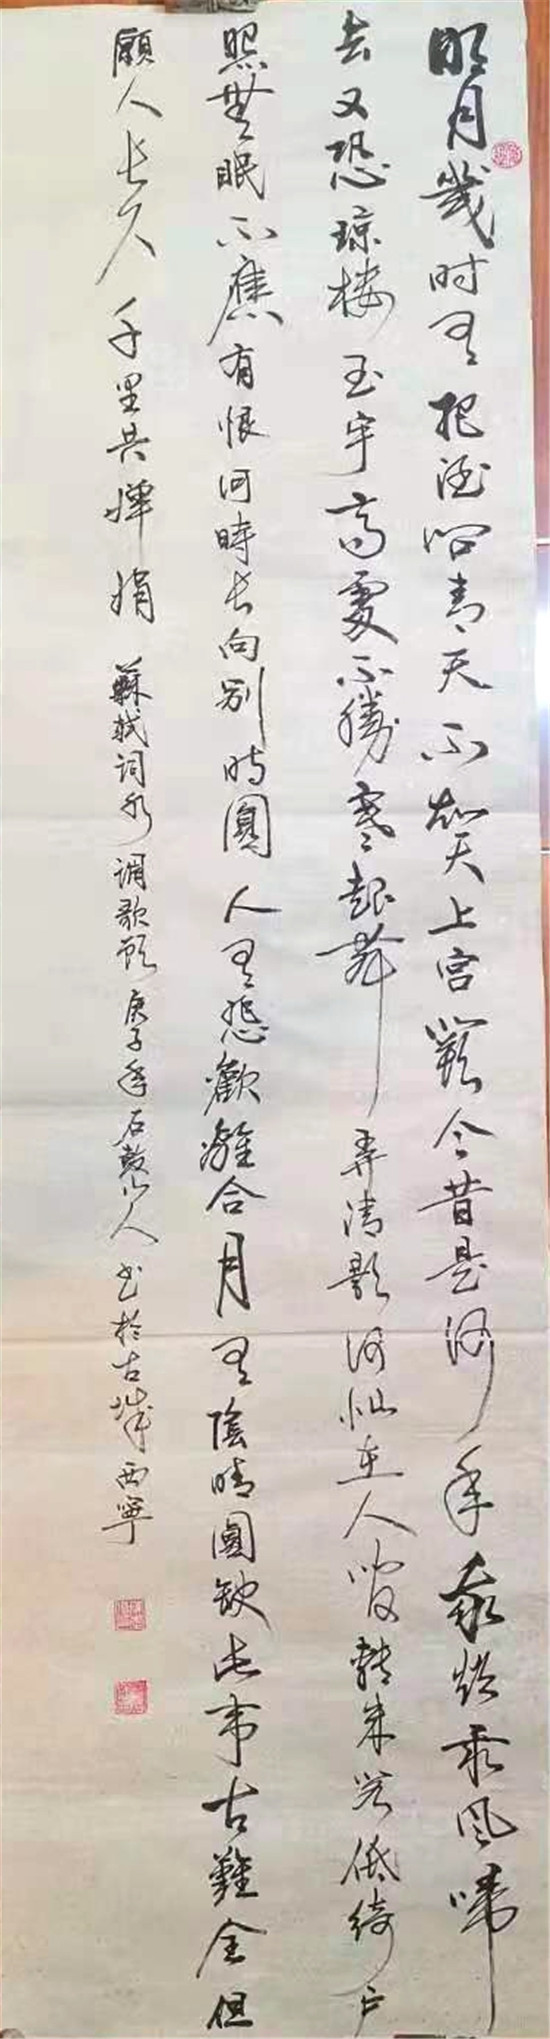 明月幾时有把酒问青天不知天上宫闕今昔是何年我欲乘风归
去又恐琼楼玉宇高處不勝寒起舞弄清影何似在人间转朱阁低绮户
照無眠不應有恨何時长向别时圓人有悲歡離合月有陰晴圓缺此事古難全但
願人长久千里共婵娟蘇轼词水调歌頭庚子年石鼓山人书於古城西寧